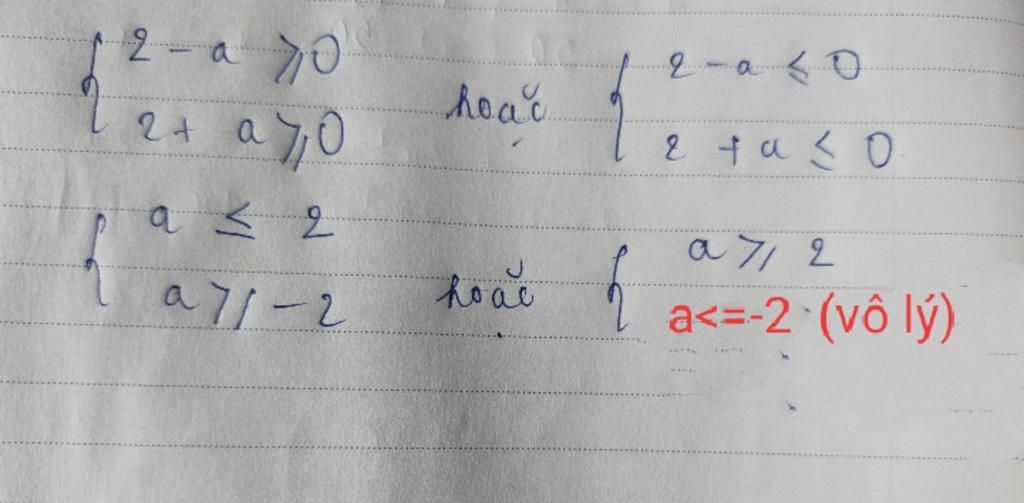 { 2 - a ≥ 0
2 + a ≥ 0 hoặc { 2 - a ≤ 0
2 + a ≤ 0
{ a ≤ 2
a ≥ -2 hoặc { a ≥ 2
a<=-2 (vô lý)